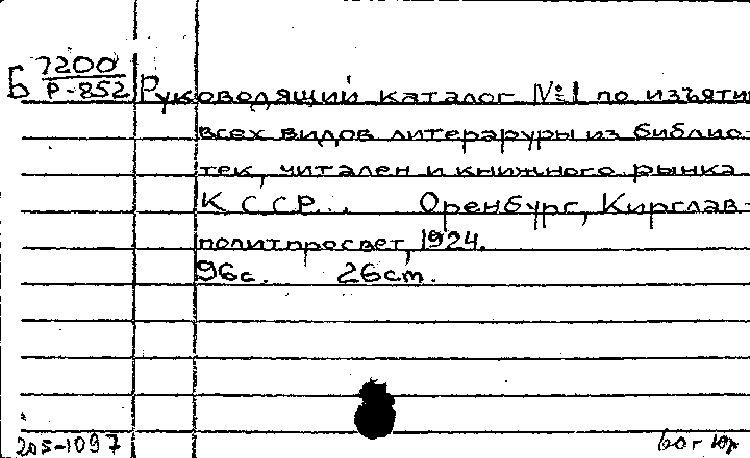 Б 7200
Р-852
Руководящий каталог №1 по изъяти
всех видов литерар​уры из библио-
тек, читален и книжного рынка
КССР... Оренбург, Кирглав-
политпросвет, 1924.
96с. 26см.
205-1097